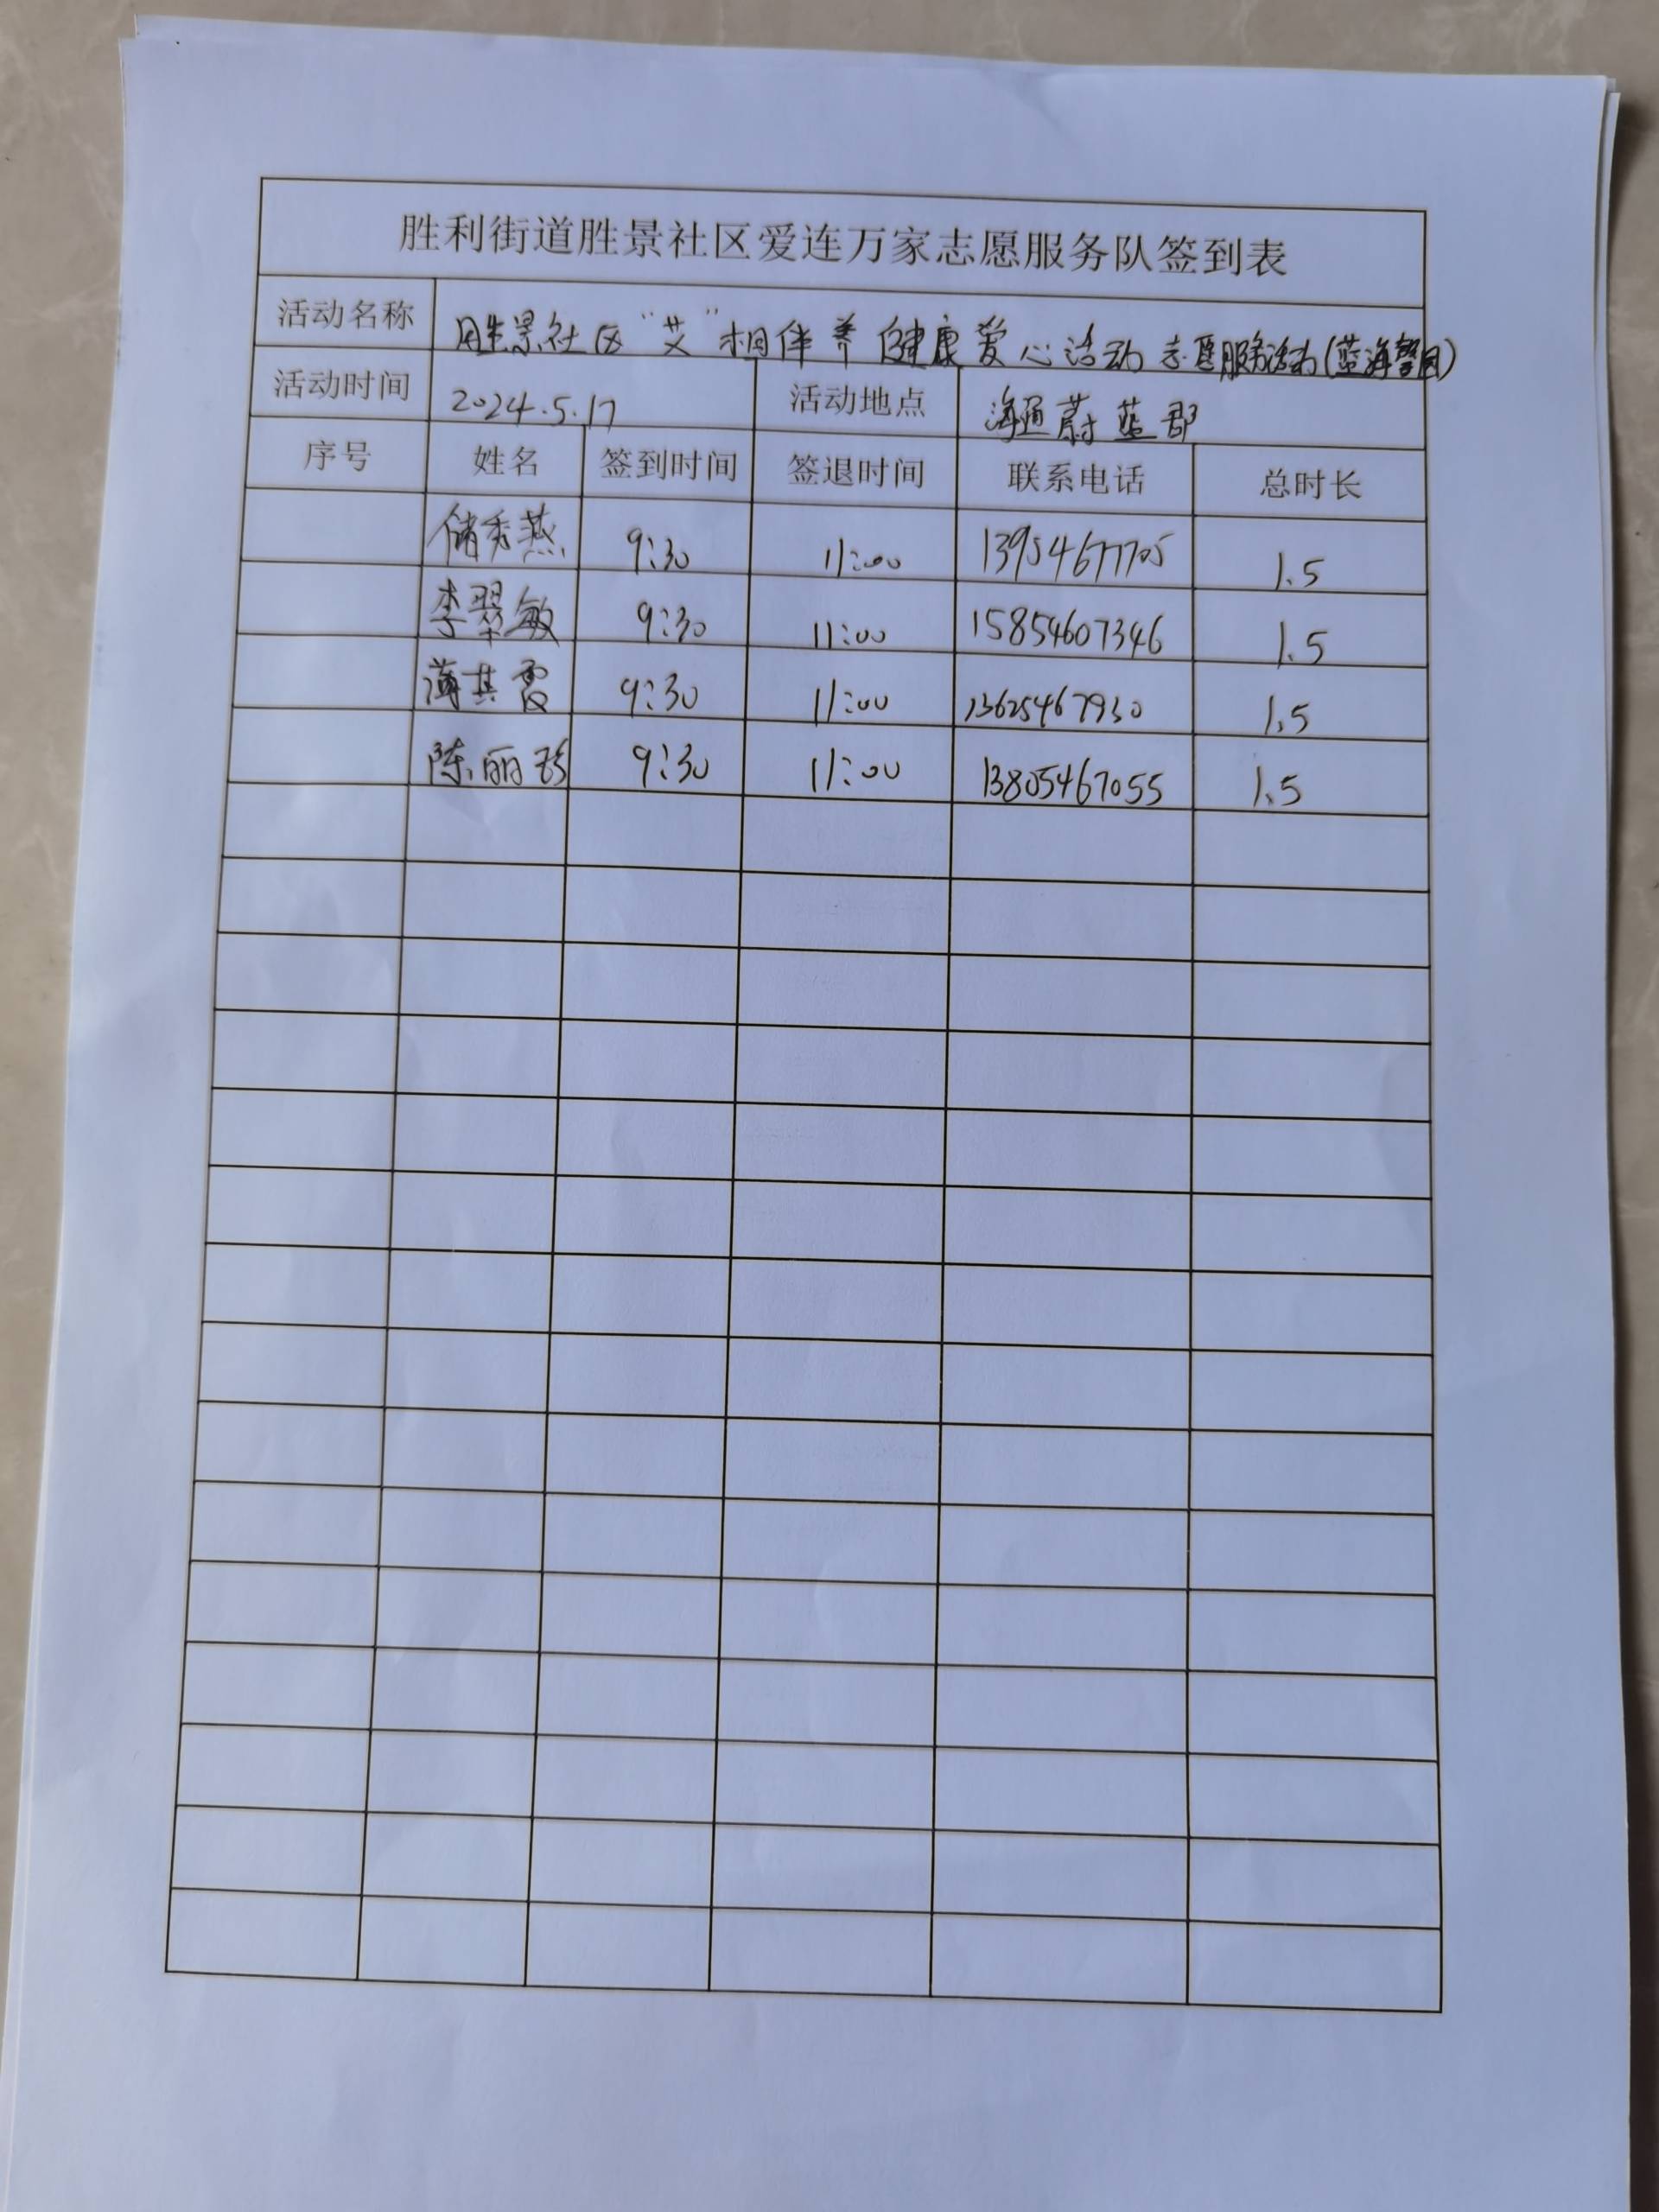 胜利街道胜景社区爱连万家志愿服务队签到表
活动名称 胜景社区“艾”相伴 养健康爱心活动 志愿服务活动(蓝海馨园)
活动时间 2024.5.17 活动地点 海通蔚蓝郡
序号 姓名 签到时间 签退时间 联系电话 总时长
储秀燕 9:30 11:00 13954677705 1.5
李翠敏 9:30 11:00 15854607346 1.5
薄其霞 9:30 11:00 13625467930 1.5
陈丽 9:30 11:00 13805467055 1.5